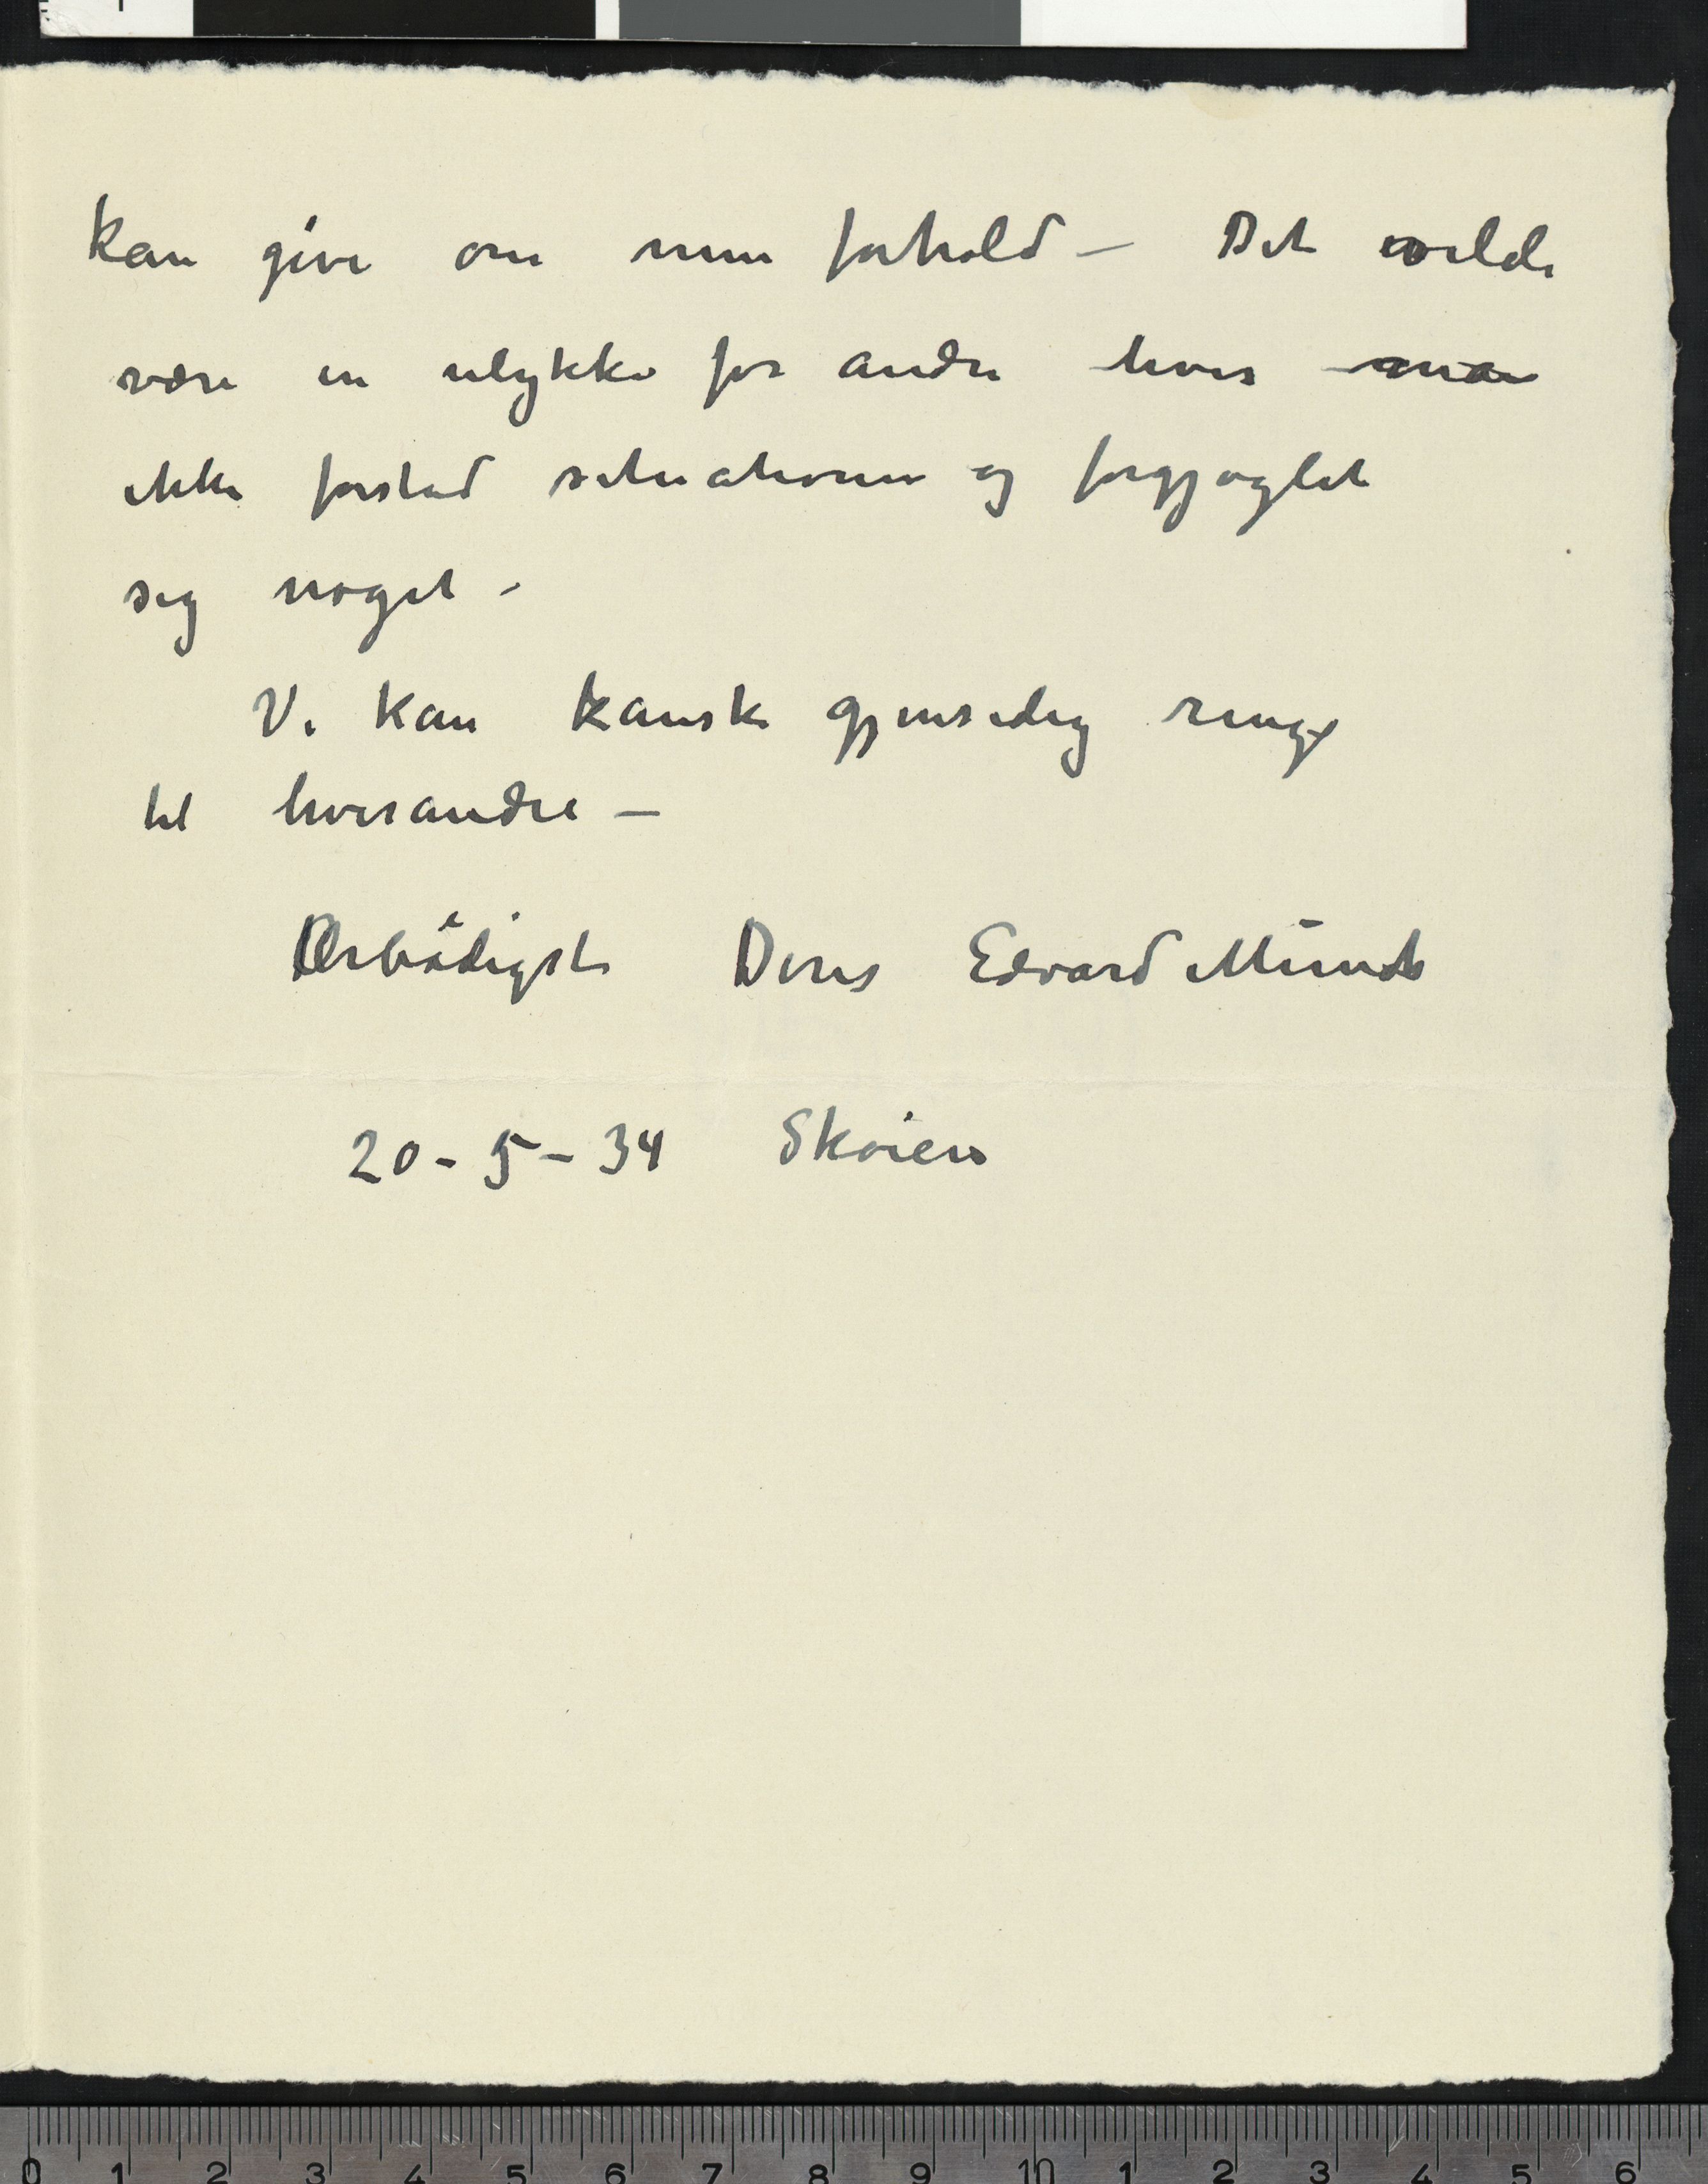 kan give om min forhold – Det vilde
være en ulykke for andre hvis man
ikke forstod situationen og forgjøglet
sig noget –
Vi kan kanske gjensidig ringe
til hverandre –
Ærbödigst Deres Edvard Munch
20 - 5 - 34 Skøien
0 1 2 3 4 5 6 7 8 9 10 1 2 3 4 5 6